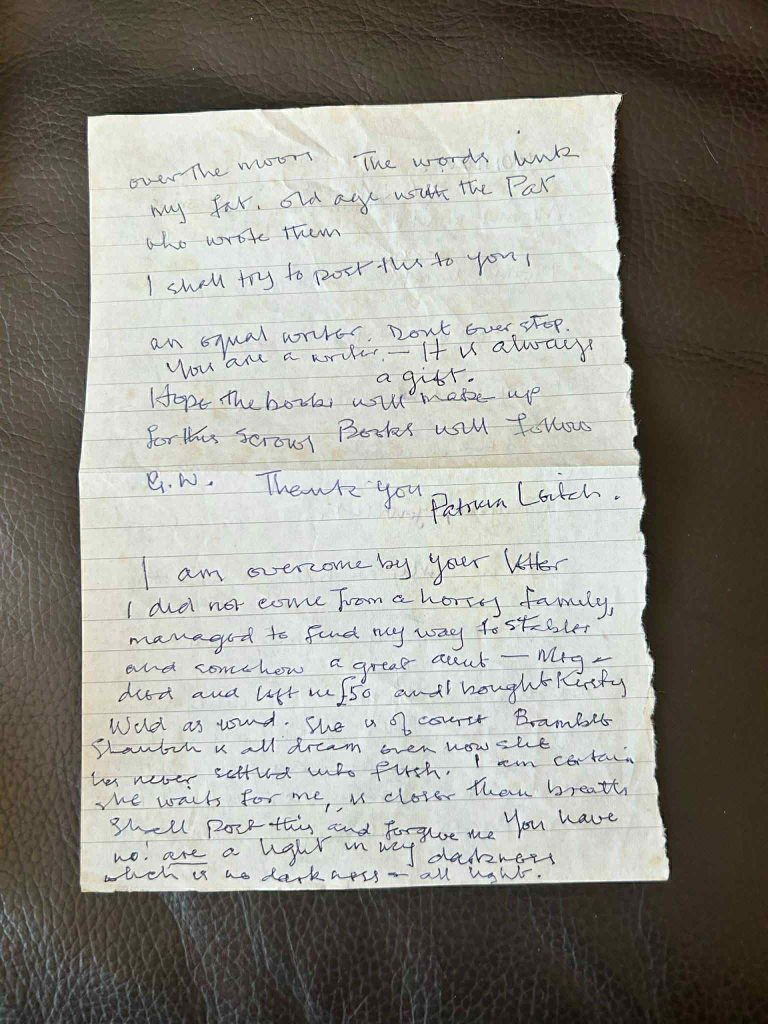 over the moors The words link
my fat. old age with the Pat
who wrote them
I shall try to post this to you,
an equal writer. Dont over stop.
You are a writer. — It is always
a gift.
Hope the books will make up
for this scrawl Books will follow
G.W. Thank you
Patricia Leitch.
I am overcome by your letter
I did not come from a horsey family,
managed to find my way to stables
and somehow a great aunt — Meg —
died and left me £50 and I bought Kirsty
Wild as wind. She is of course Bramble
Shantih is all dream even now she
has never settled into flesh. I am certain
she waits for me, is closer than breath
Shall post this and forgive me You have
no! are a light in my darkness
which is no darkness — all light.